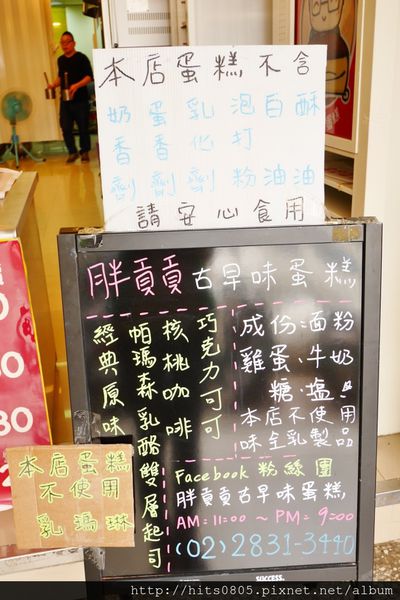 本店蛋糕不含
奶蛋乳泡白酥
香香化打
劑劑劑粉油油
請安心食用
胖貢貢古早味蛋糕
經典原味
帕瑪森乳酪雙層起司
核桃咖啡
巧克力可可
成份:麵粉
雞蛋、牛奶
糖、鹽
本店不使用
味全乳製品
Facebook 粉絲團
胖貢貢古早味蛋糕
AM:11:00 ~ PM:9:00
(02)2831-3440
本店蛋糕
不使用
乳瑪琳
SUCCESS.
http://hits0805.pixnet.net/album